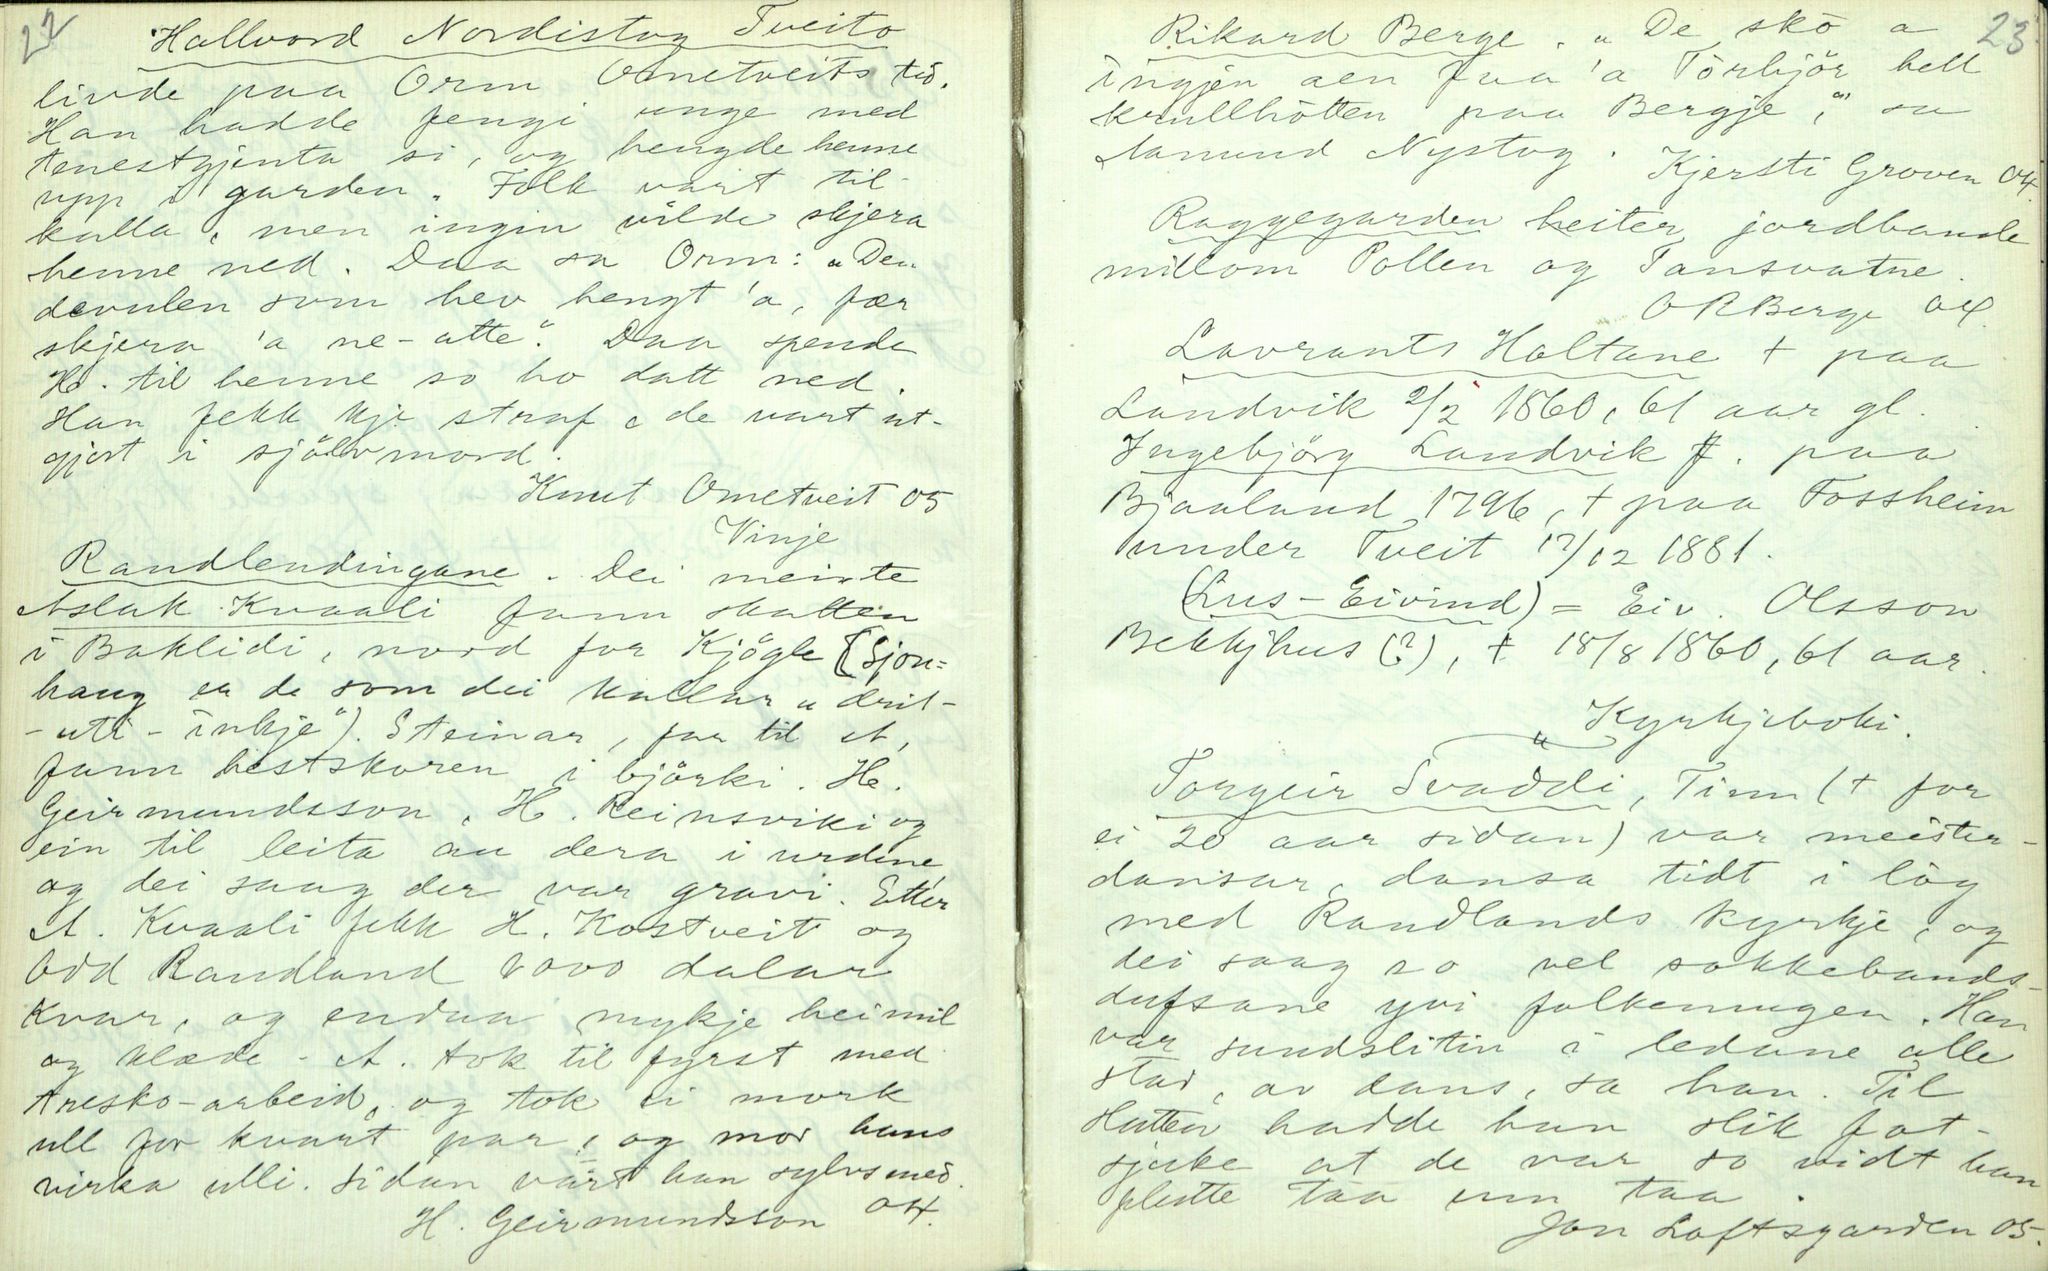 22
Hallvord Nordistog Tveito
livde paa Orm Ometveits tid.
Han hadde fengi unge med
tenestgjenta si, og hengde henne
upp i garden. Folk vart til-
kalla, men ingin vilde skjera
henne ned. Daa sa Orm: „Den
devulen som hev hengt 'a, fær
skjera 'a ne-atte". Daa spende
H. til henne so ho datt ned.
Han fekk kje straf, de vart ut-
gjort i sjölvmord.
Knut Ometveit 05
Vinje
Randlendingane. Dei meinte
Aslak Kvaali fann skatten
i Baklidi, nord for Kjögle [(Sjon=
haug er de som dei kallar „drit-
-uti-inkje"). Steinar, far til A,
fann hestskoren i björki. H.
Geirmundsson, H. Reinsviki og
ein til leita au dera i urdine
og dei saag der var gravi. Etter
A. Kvaali fekk H. Kostveit og
Odd Randland 8000 dalar
kvar, og endaa mykje heimil
og klæde - A. tok til fyrst med
tresko-arbeid, og tok ei mork
ull for kvart par, og mor hans
virka ulli. Sidan vart han sylvsmed.
H. Geirmundsson 04.
23
Rikard Berge. „De sko a
ingjen aen faa 'a Törbjör hell
skrullhötten paa Bergje," sa
Aamund Nystog.
Kjersti Groven 04.
Raggegarden heiter jordbande
millom Pollen og Tansvatne.
O R Berge 04.
Lavrants Haltane + paa
Landvik 2/2 1860, 61 aar gl.
Ingebjörg Landvik f. paa
Bjaaland 1796, + paa Fossheim
under Tveit 17/12 1881.
(Lus-Eivind) = Eiv. Olsson
Bekkjhus (?), + 18/8 1860, 61 aar.
„ Kyrkjeboki.
Torgeir Svaddi, Tinn (+ for
ei 20 aar sidan) var meister-
dansar, dansa tidt i låg
med Randlands kyrkje, og
dei saag so vel sokkebands-
dufsane yvi folkemugen. Han
var sundslitin i ledane alle
stad, av dans, sa han. Til
slutten hadde han slik fot-
sjuke at de var so vidt han
flutte taa um taa.
Jon Loftsgarden 05.